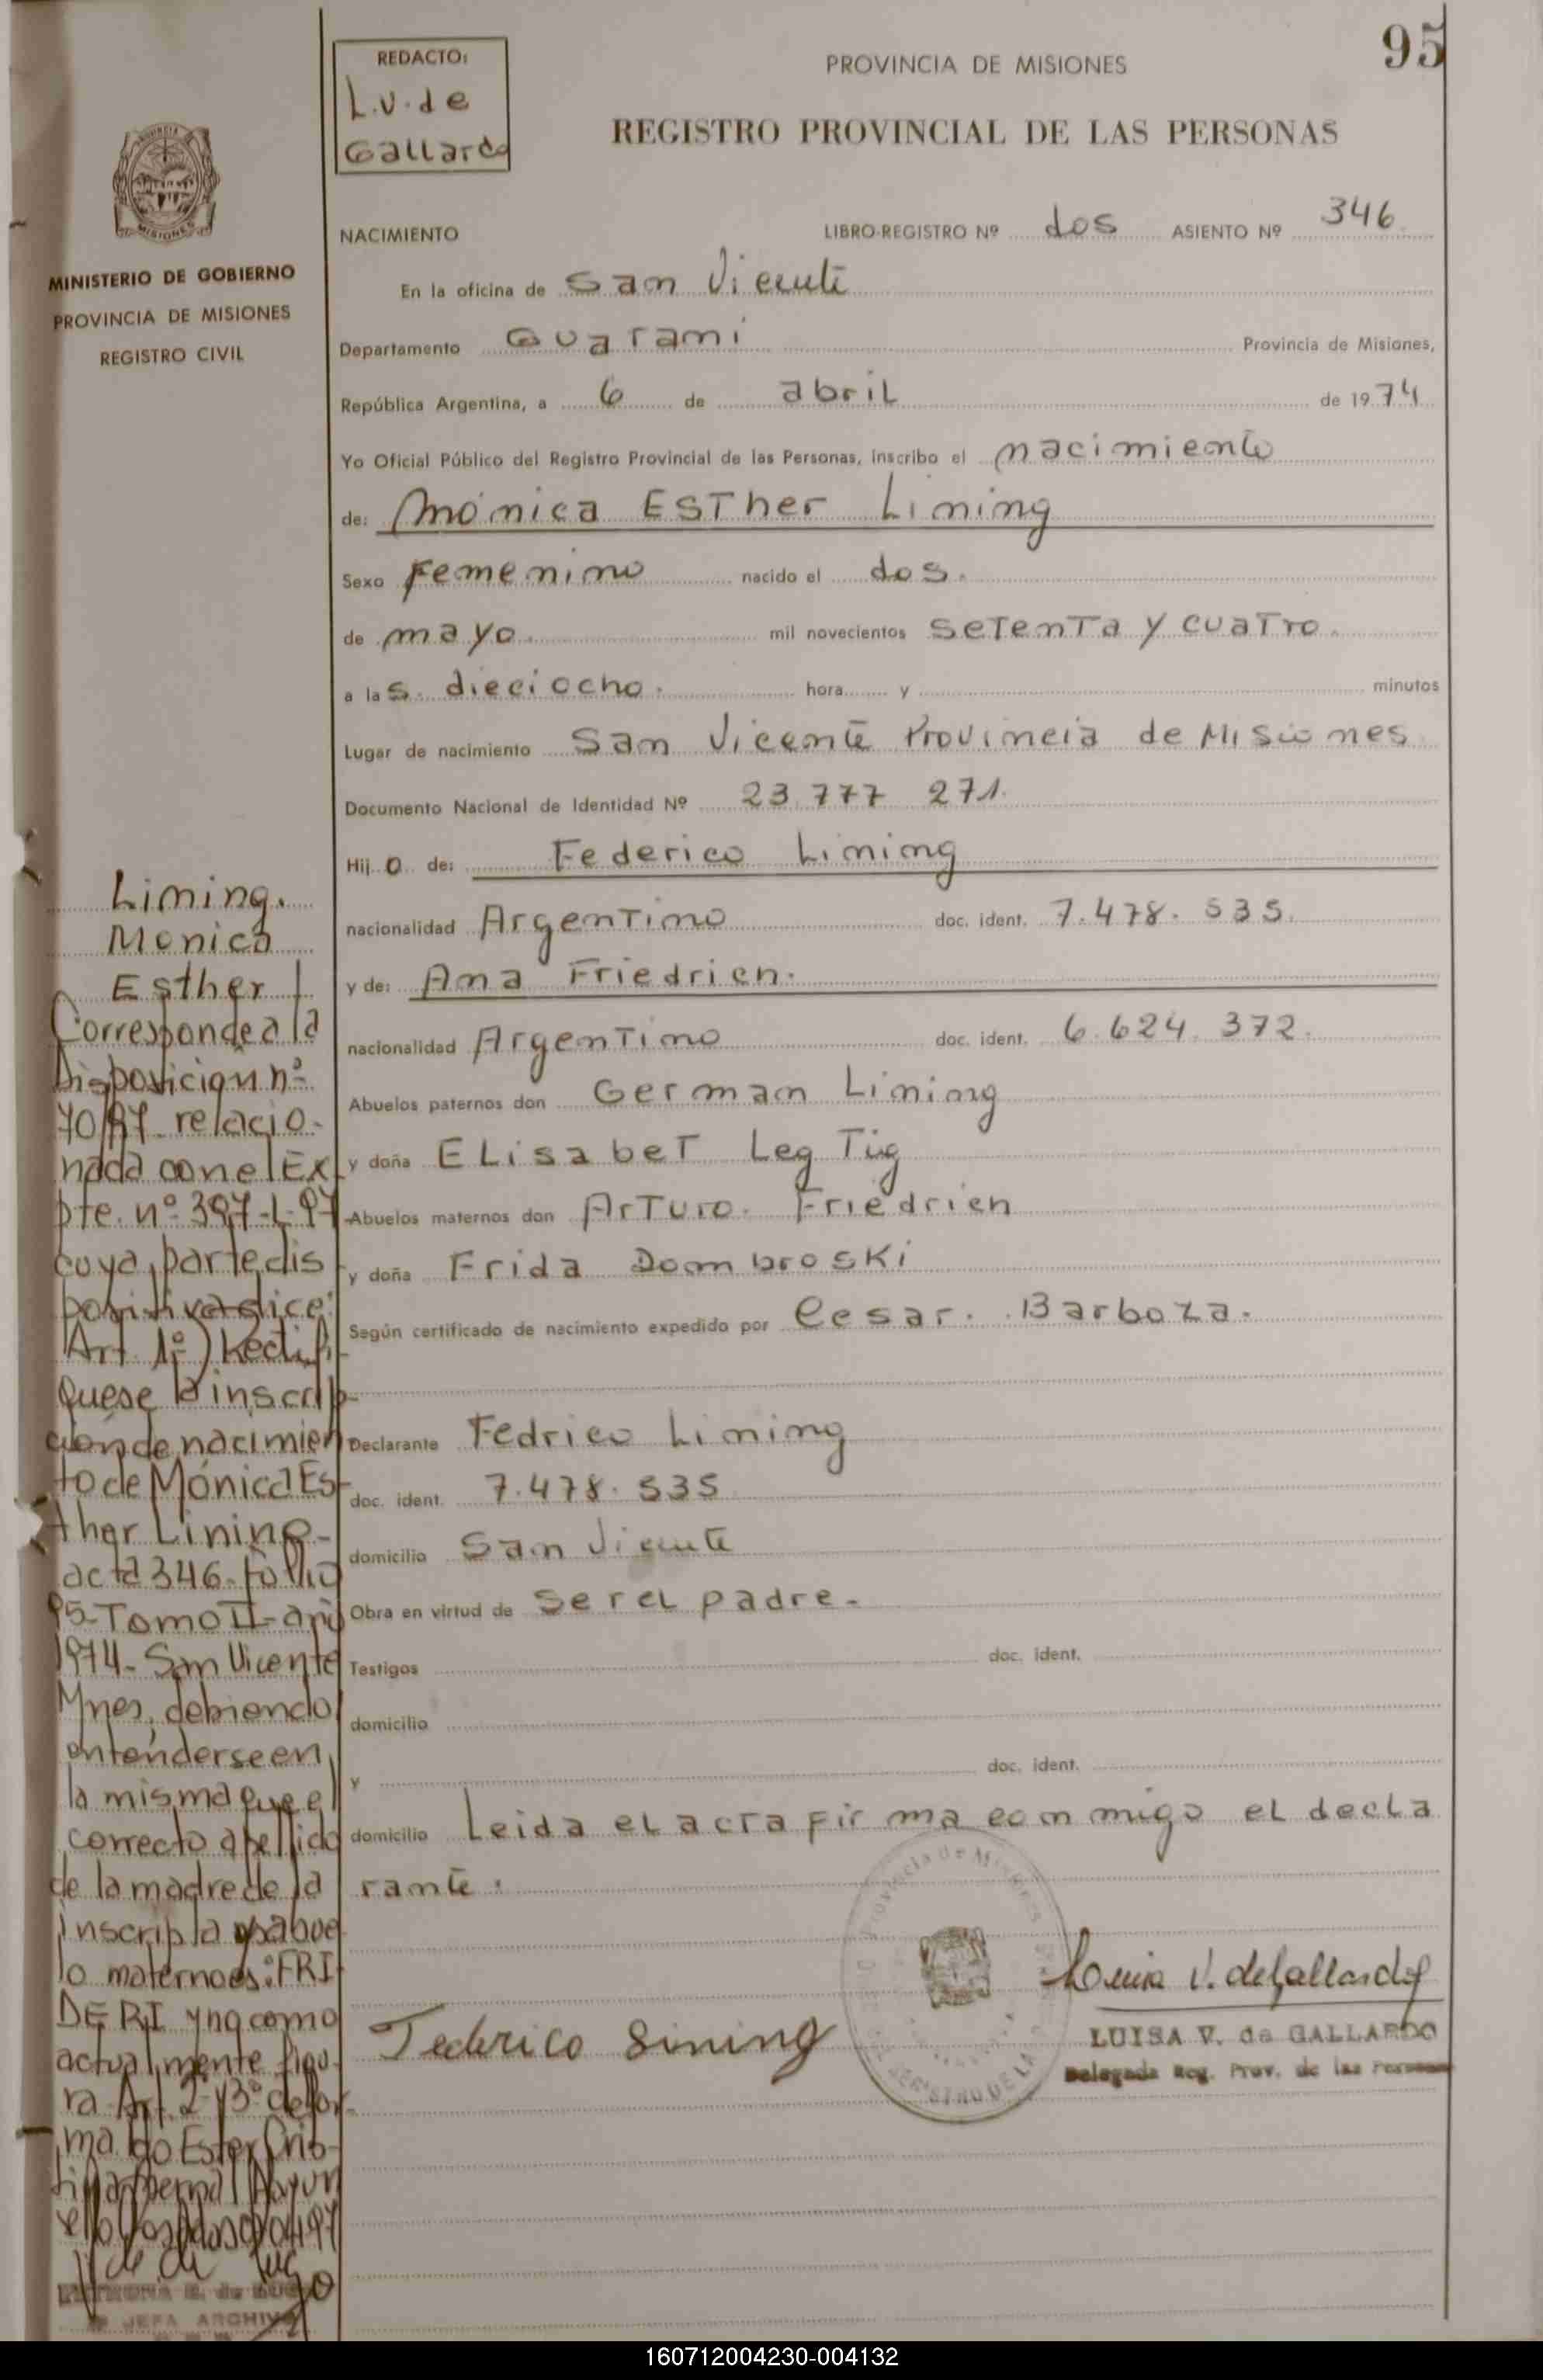 95
REDACTO:
L.V. de
Gallardo
PROVINCIA DE MISIONES
REGISTRO PROVINCIAL DE LAS PERSONAS
MISIONES
MINISTERIO DE GOBIERNO
PROVINCIA DE MISIONES
REGISTRO CIVIL
NACIMIENTO LIBRO-REGISTRO Nº dos ASIENTO Nº 346
En la oficina de San Vicente
Departamento Guarani Provincia de Misiones,
República Argentina, a 6 de abril de 1974
Yo Oficial Público del Registro Provincial de las Personas, inscribo el nacimiento
de: Mónica Esther Lining
Sexo Femenino nacido el dos.
de mayo. mil novecientos setenta y cuatro.
a las dieciocho. hora y minutos
Lugar de nacimiento San Vicente Provincia de Misiones
Documento Nacional de Identidad Nº 23.777 271.
Hijo de: Federico Lining
nacionalidad Argentino doc. ident. 7.478.535.
y de: Ana Friedrien.
nacionalidad Argentino doc. ident. 6.624.372.
Abuelos paternos don German Lining
y doña Elisabet Leg Tig
Abuelos maternos don Arturo. Friedrien
y doña Frida Dombroski
Según certificado de nacimiento expedido por Cesar. Barboza.
Declarante Fedrico Lining
doc. ident. 7.478.535
domicilio San Vicente
Obra en virtud de ser el padre.
Testigos doc. ident.
domicilio
y doc. ident.
domicilio Leida el acta firma conmigo el decla
rante.
Federico Lining
Luisa V. de Gallardo
LUISA V. de GALLARDO
Delegada Reg. Prov. de las Personas
Provincia de Misiones
Lining.
Monica
Esther
Corresponde a la
Disposicion nº
70/97 relacio-
nada con el Ex
pte. nº 397-L-97
cuya parte dis
positiva dice:
Art. 1º) Rectifi
quese la inscrip
ción de nacimien
to de Mónica Es
ther Lining-
acta 346-folio
95-Tomo II-año
1974-San Vicente
Mnes, debiendo
entenderse en
la misma que el
correcto apellido
de la madre de la
inscripta y abue
lo materno es: FRI
DERI y no como
actualmente figu-
ra Art. 2º y 3º de for-
ma
JEFA ARCHIVO
160712004230-004132